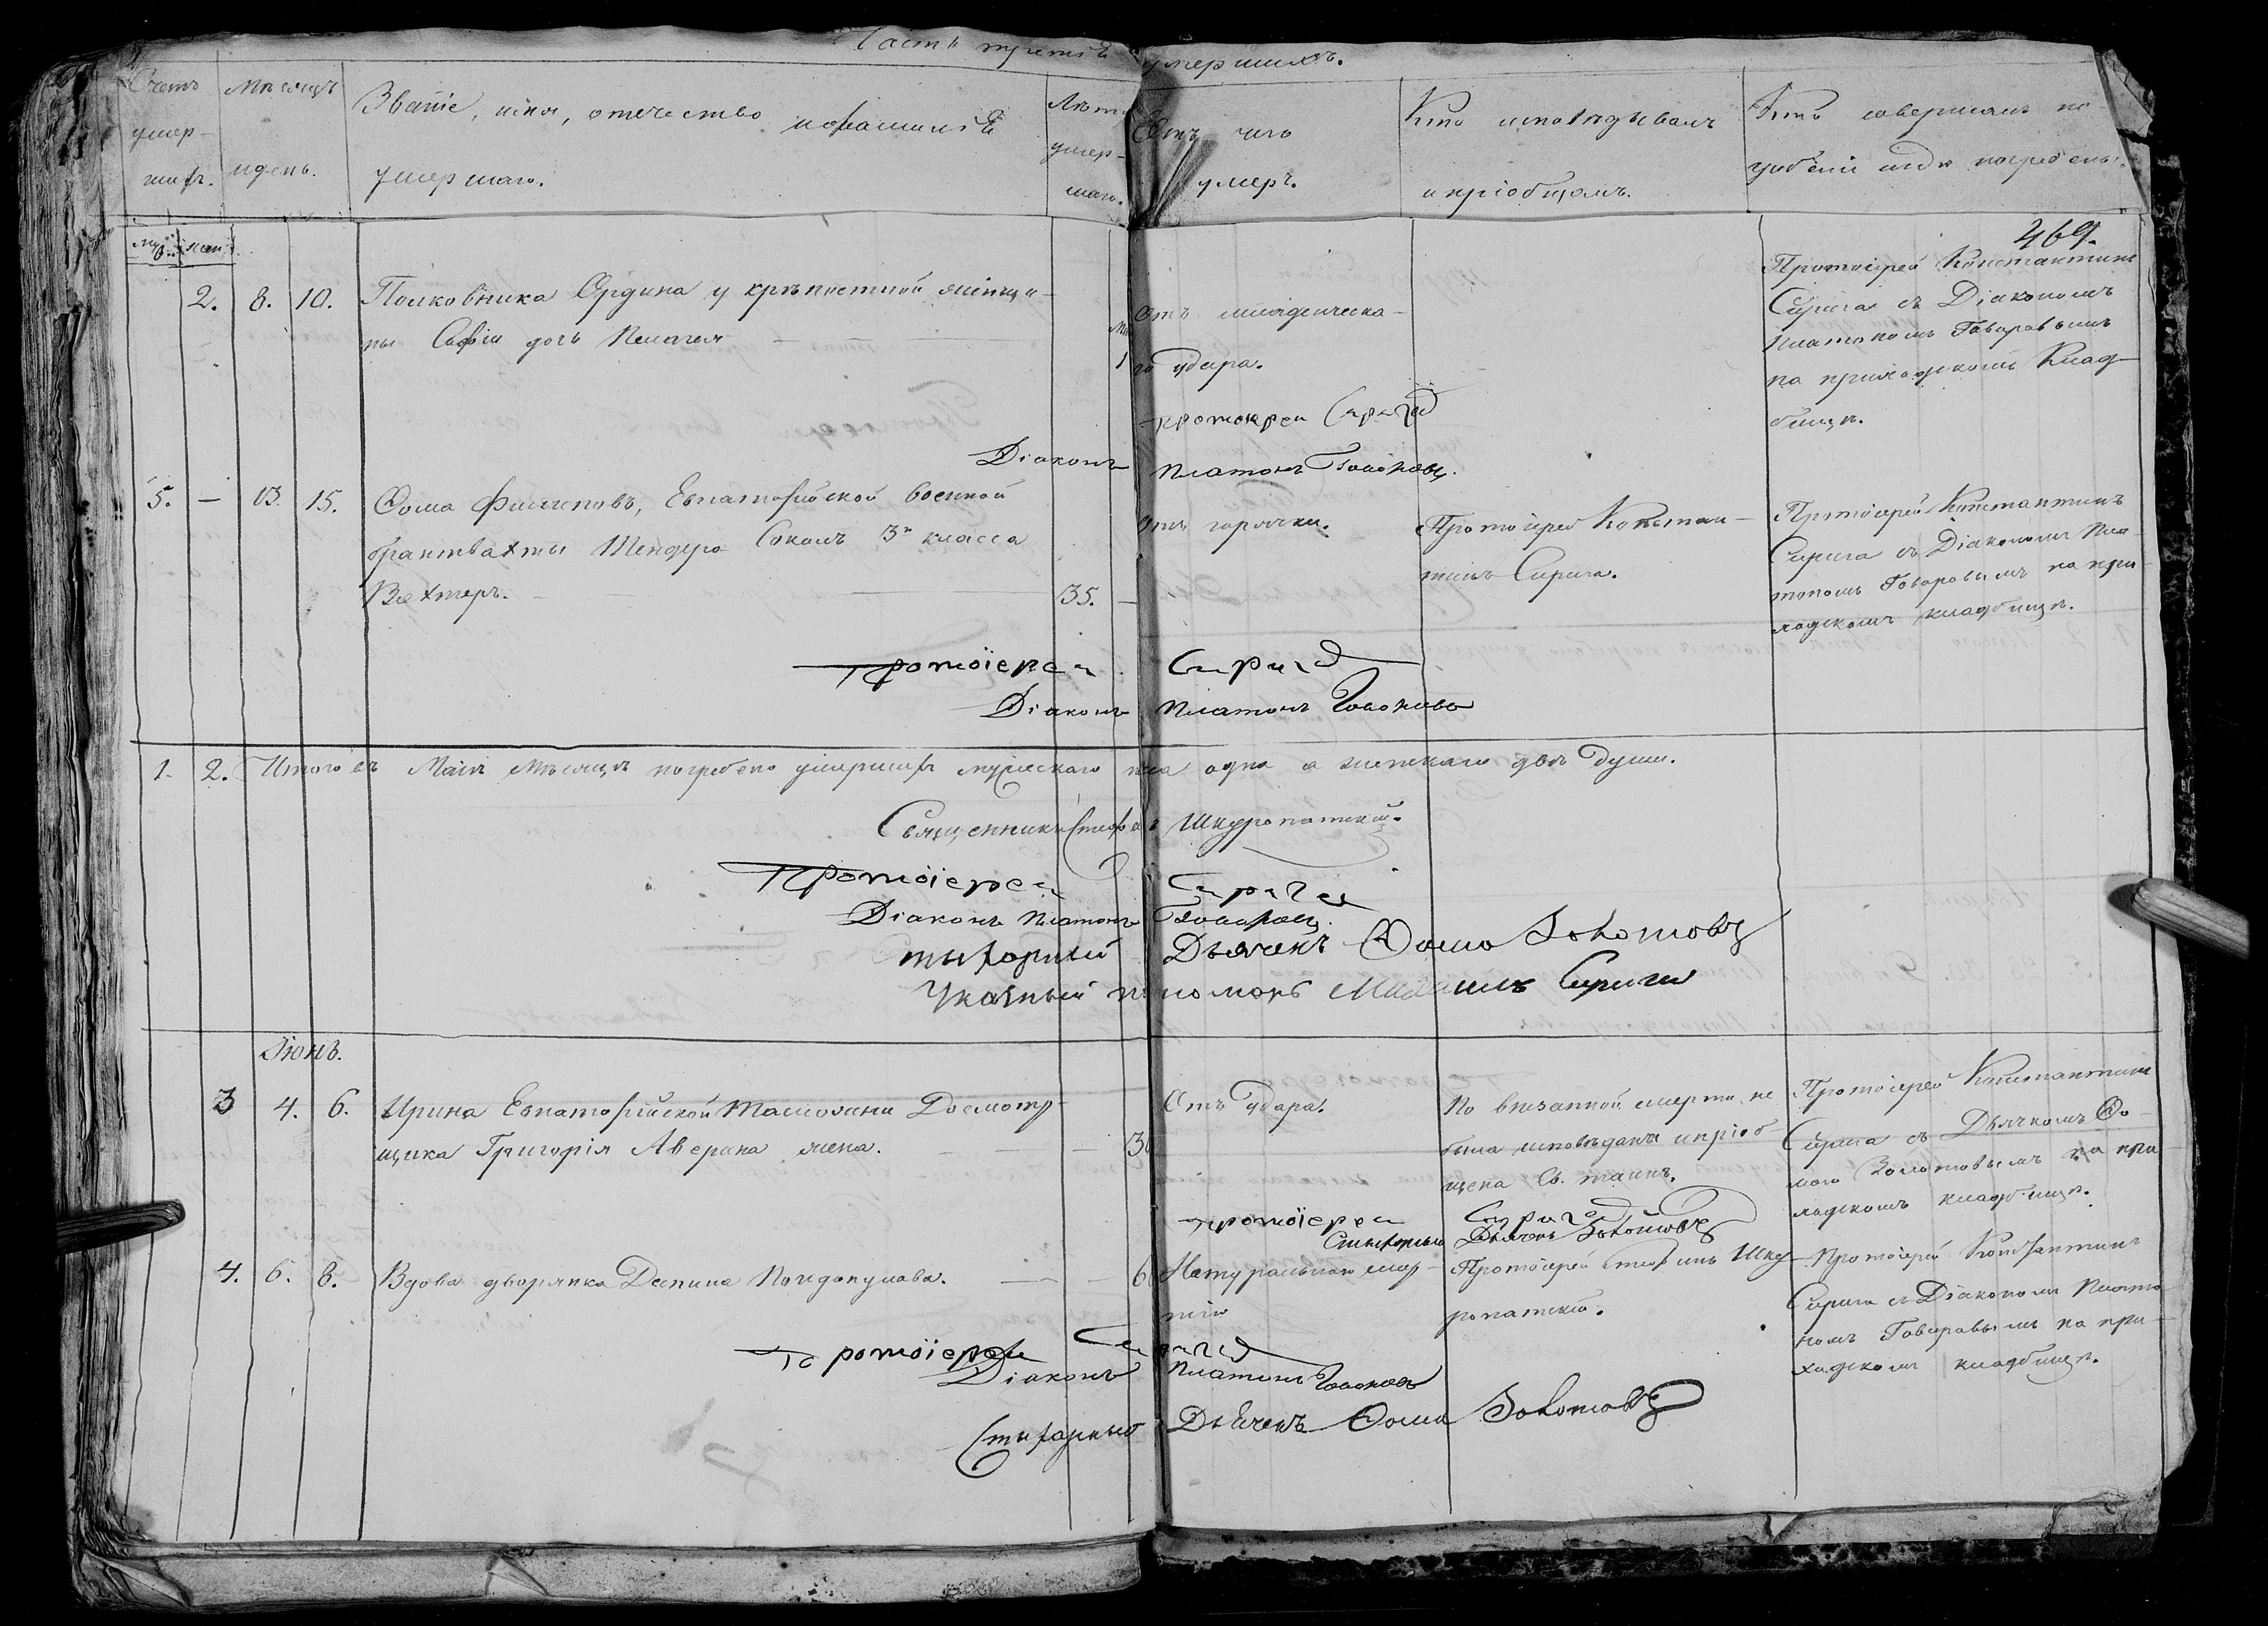 Часть третія умершихъ.
Счетъ умер-шихъ. Мѣсяцъ и день. Званіе, имя, отечество и фамилія умершаго. Лѣта умер-шаго. Отъ чего умеръ. Кто исповѣдывалъ и пріобщалъ. Кто совершалъ по-гребеніе и гдѣ погребены.
муж. жен.
469.
2. 8. 10. Полковника Ордина у крѣпостной женщи-
ны Софіи дочь Пелагея
1
Отъ младенческа-
го удара.
Протоіерей Константинъ
Сирига съ Діакономъ
Платономъ Говоровымъ
на приходскомъ Клад-
бищѣ.
Протоіерей Сирига
Діаконъ Платонъ Говоровъ.
5. — 13. 15. Ѳома Филиповъ, Евпаторійской военной
брантвахты Тендера Соколъ 3го класса
Вахтеръ. 35.
Отъ горячки.
Протоіерей Констан-
тинъ Сирига.
Протоіерей Константинъ
Сирига съ Діакономъ Пла-
тономъ Говоровымъ на при-
ходскомъ кладбищѣ.
Протоіерей Сирига
Діаконъ Платонъ Говоровъ
1. 2. Итого въ Маіѣ мѣсяцѣ погребено умершихъ мужескаго пола одна а женскаго двѣ души.
Священникъ Стефанъ Шкуропатскій.
Протоіерей Сирига
Діаконъ Платонъ Говоровъ.
Стихарный Дьячекъ Ѳома Золотовъ
Указный пономарь Михаилъ Сирига
Іюнь.
3 4. 6. Ирина Евпаторійской Таможни Досмотр-
щика Григорія Аверина жена. 30
Отъ удара.
По внезапной смерти не
была исповѣдана и пріоб-
щена Св. таинъ.
Протоіерей Константинъ
Сирига съ Дьячкомъ Ѳо-
мою Золотовымъ на при-
ходскомъ кладбищѣ.
Протоіерей Сирига
Стихарный Дьячекъ Золотовъ
4. 6. 8. Вдова дворянка Деспина Пондопулова. 6
Натуральною смер-
тію
Протоіерей Стефанъ Шку-
ропатскій.
Протоіерей Константинъ
Сирига съ Діакономъ Плато-
номъ Говоровымъ на при-
ходскомъ кладбищѣ.
Протоіерей Сирига
Діаконъ Платонъ Говоровъ
Стихарный Дьячекъ Ѳома Золотовъ